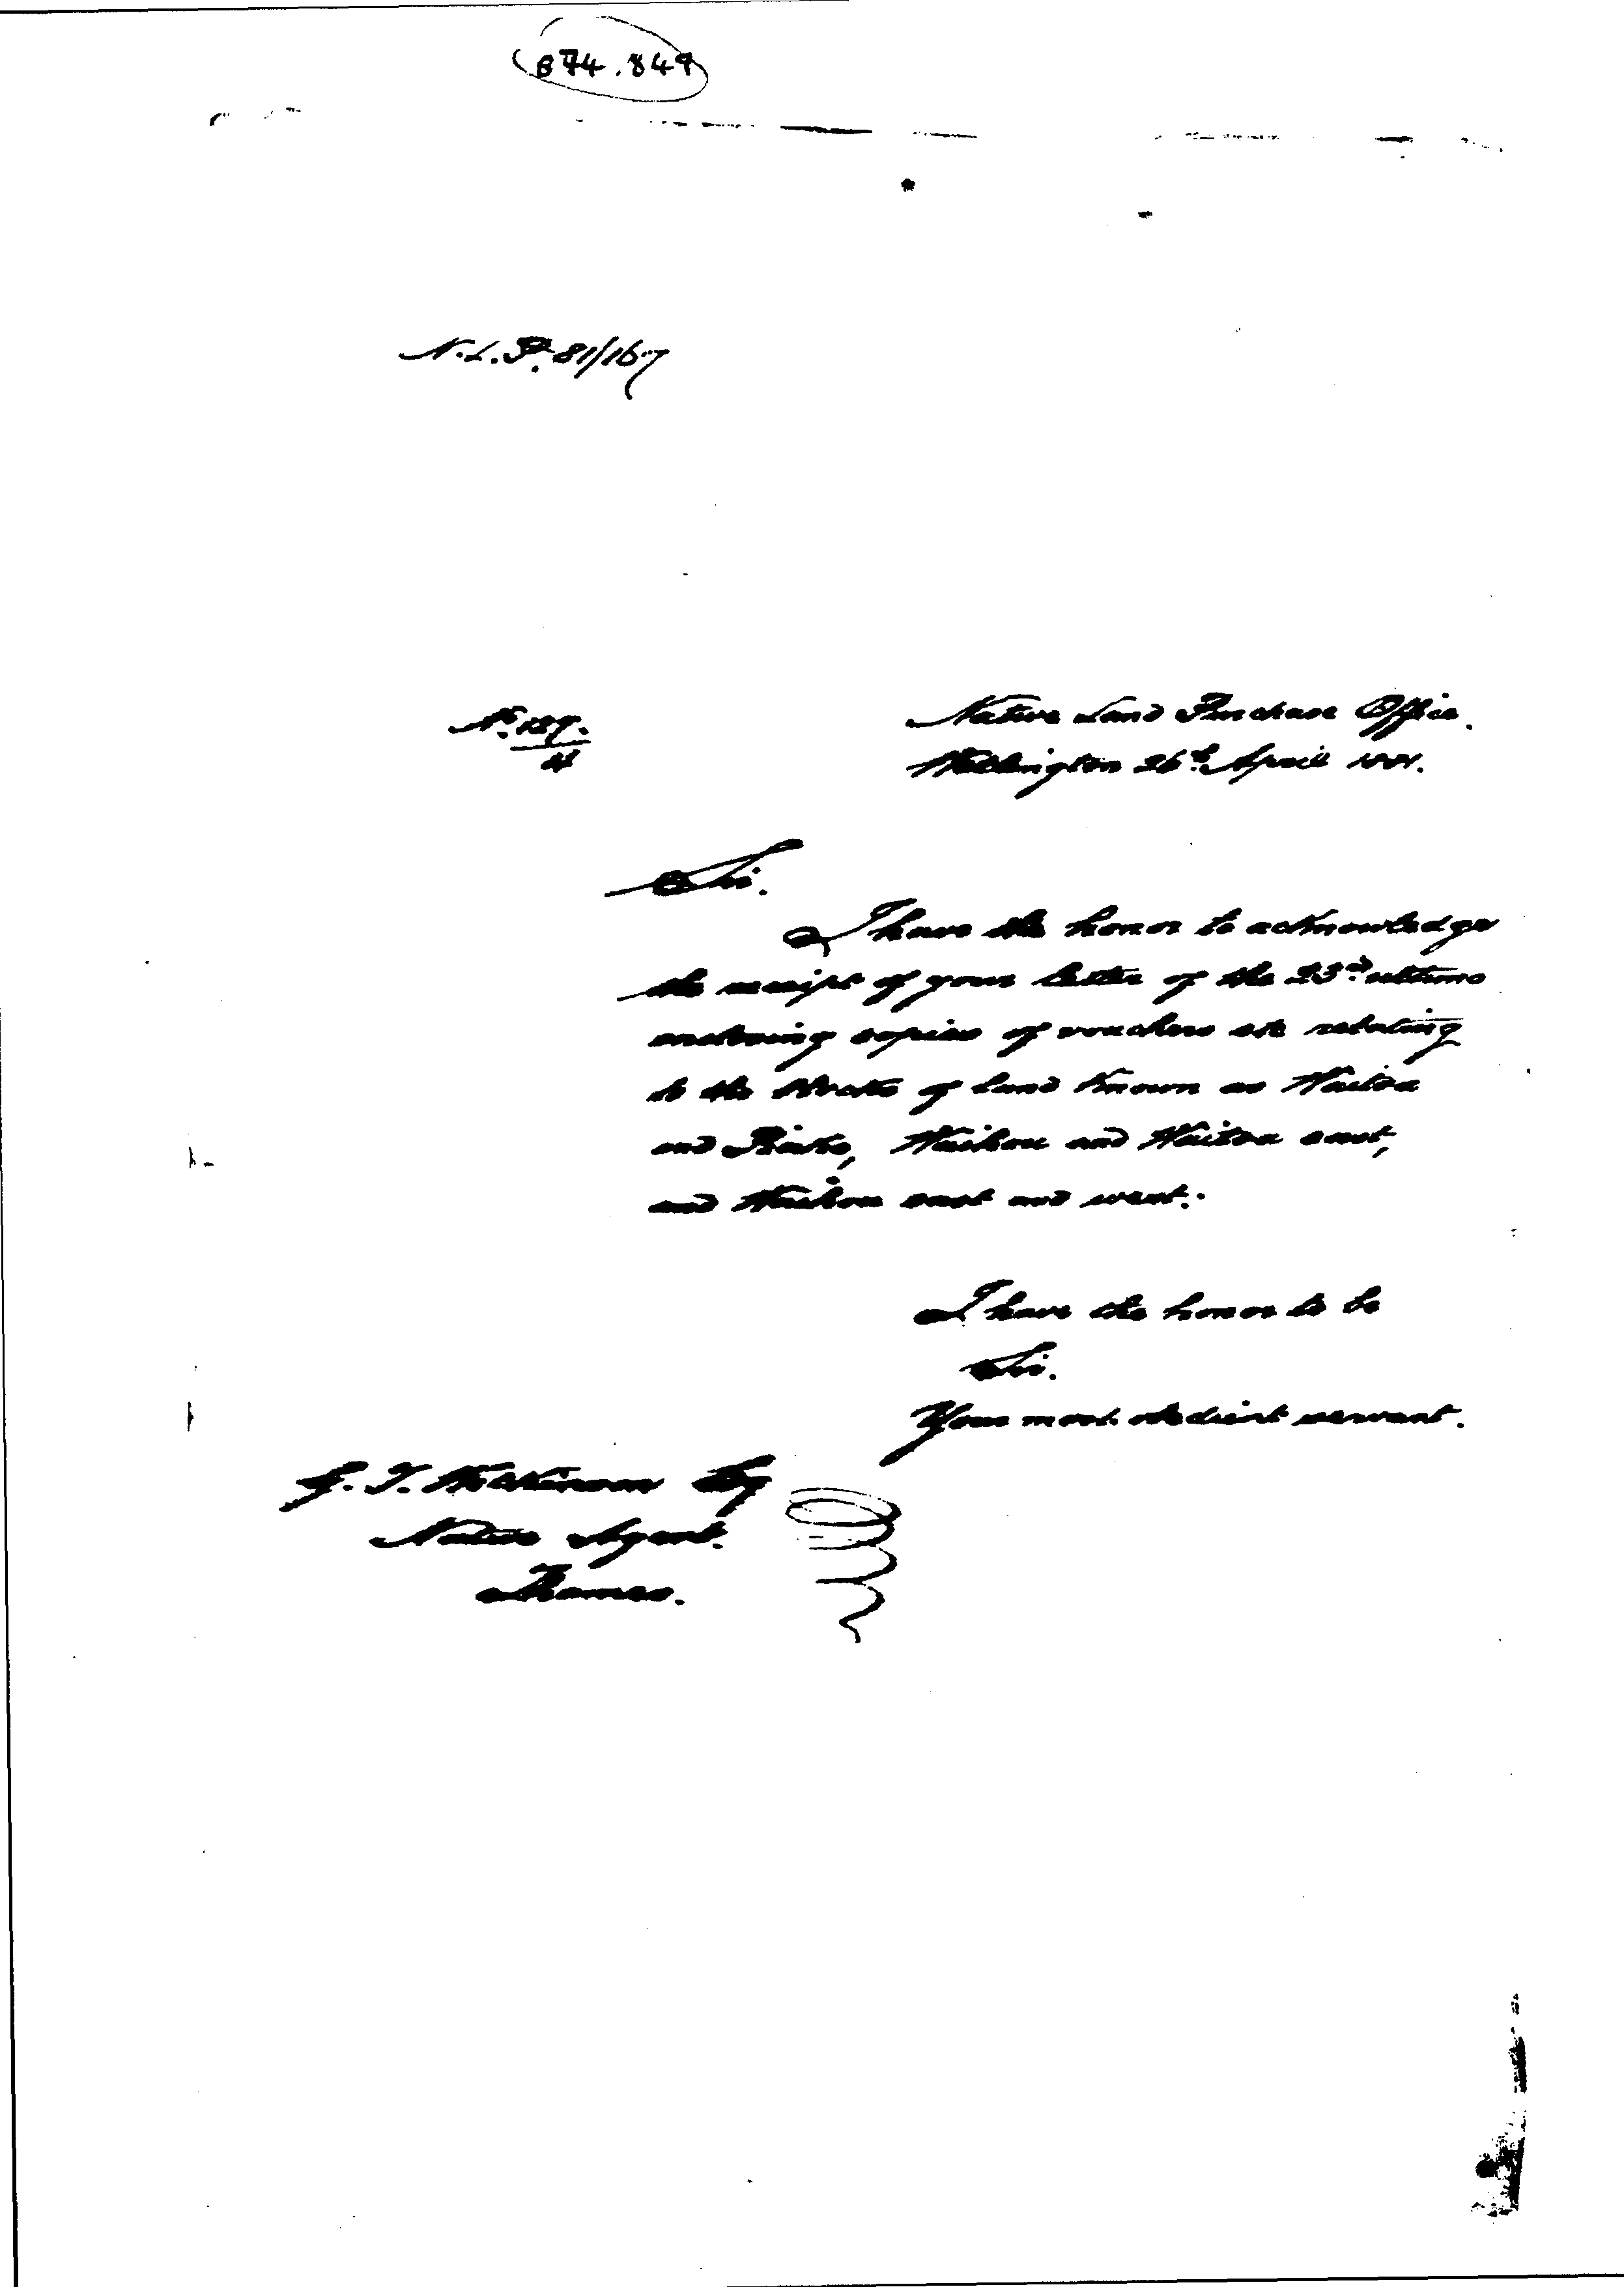 874.849
N.L.P. 81/167
No. 189.
4
Native Land Purchase Office.
Wellington 26th April 1881.
Sir.
I have the honor to acknowledge
the receipt of your letter of the 23rd ultimo
enclosing copies of vouchers etc relating
to the blocks of land known as Waitoa
and Piako, Waihou and Waitoa east,
and Waihou east and west.
I have the honor to be
Sir.
Your most obedient servant.
G. T. Wilkinson Esq
Native Agent.
Thames.